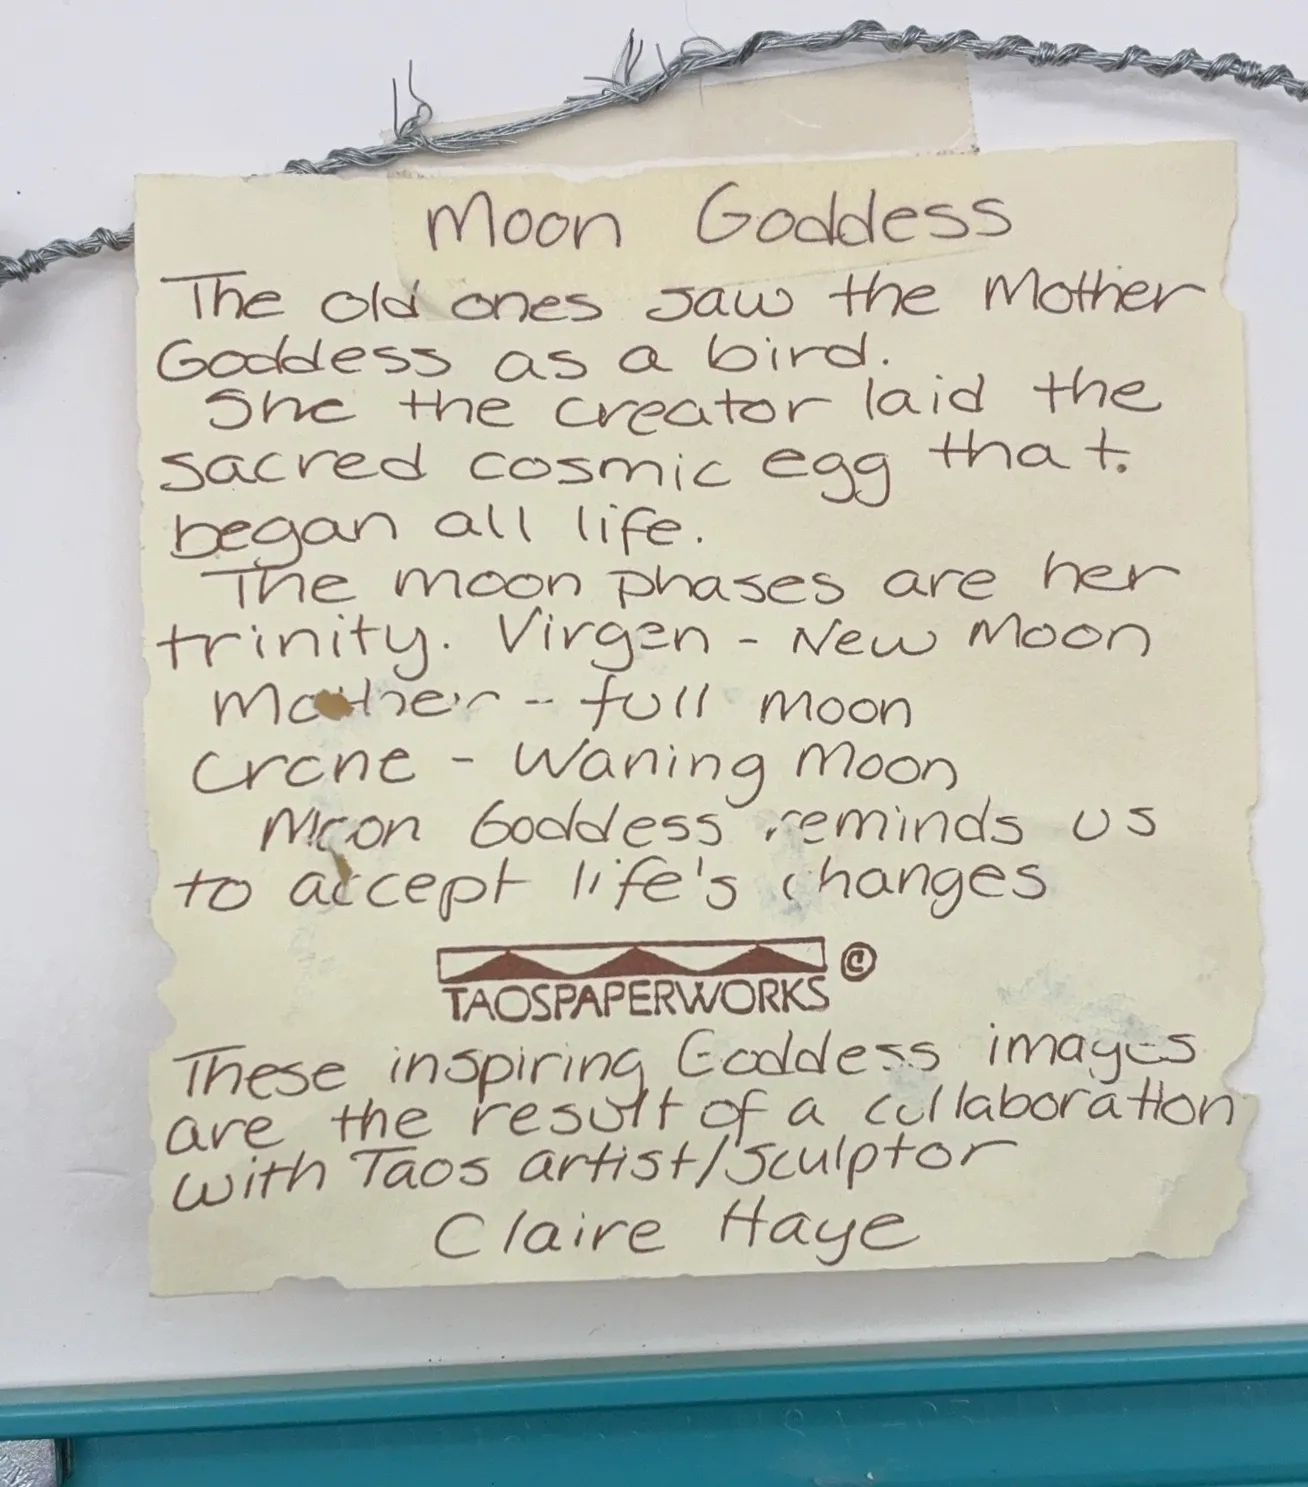 Moon Goddess
The old ones saw the Mother
Goddess as a bird.
She the creator laid the
sacred cosmic egg that.
began all life.
The moon phases are her
trinity. Virgen - New Moon
Mother - full moon
Crone - Waning Moon
Moon Goddess reminds us
to accept life's changes
TAOSPAPERWORKS ©
These inspiring Goddess images
are the result of a collaboration
with Taos artist/sculptor
Claire Haye